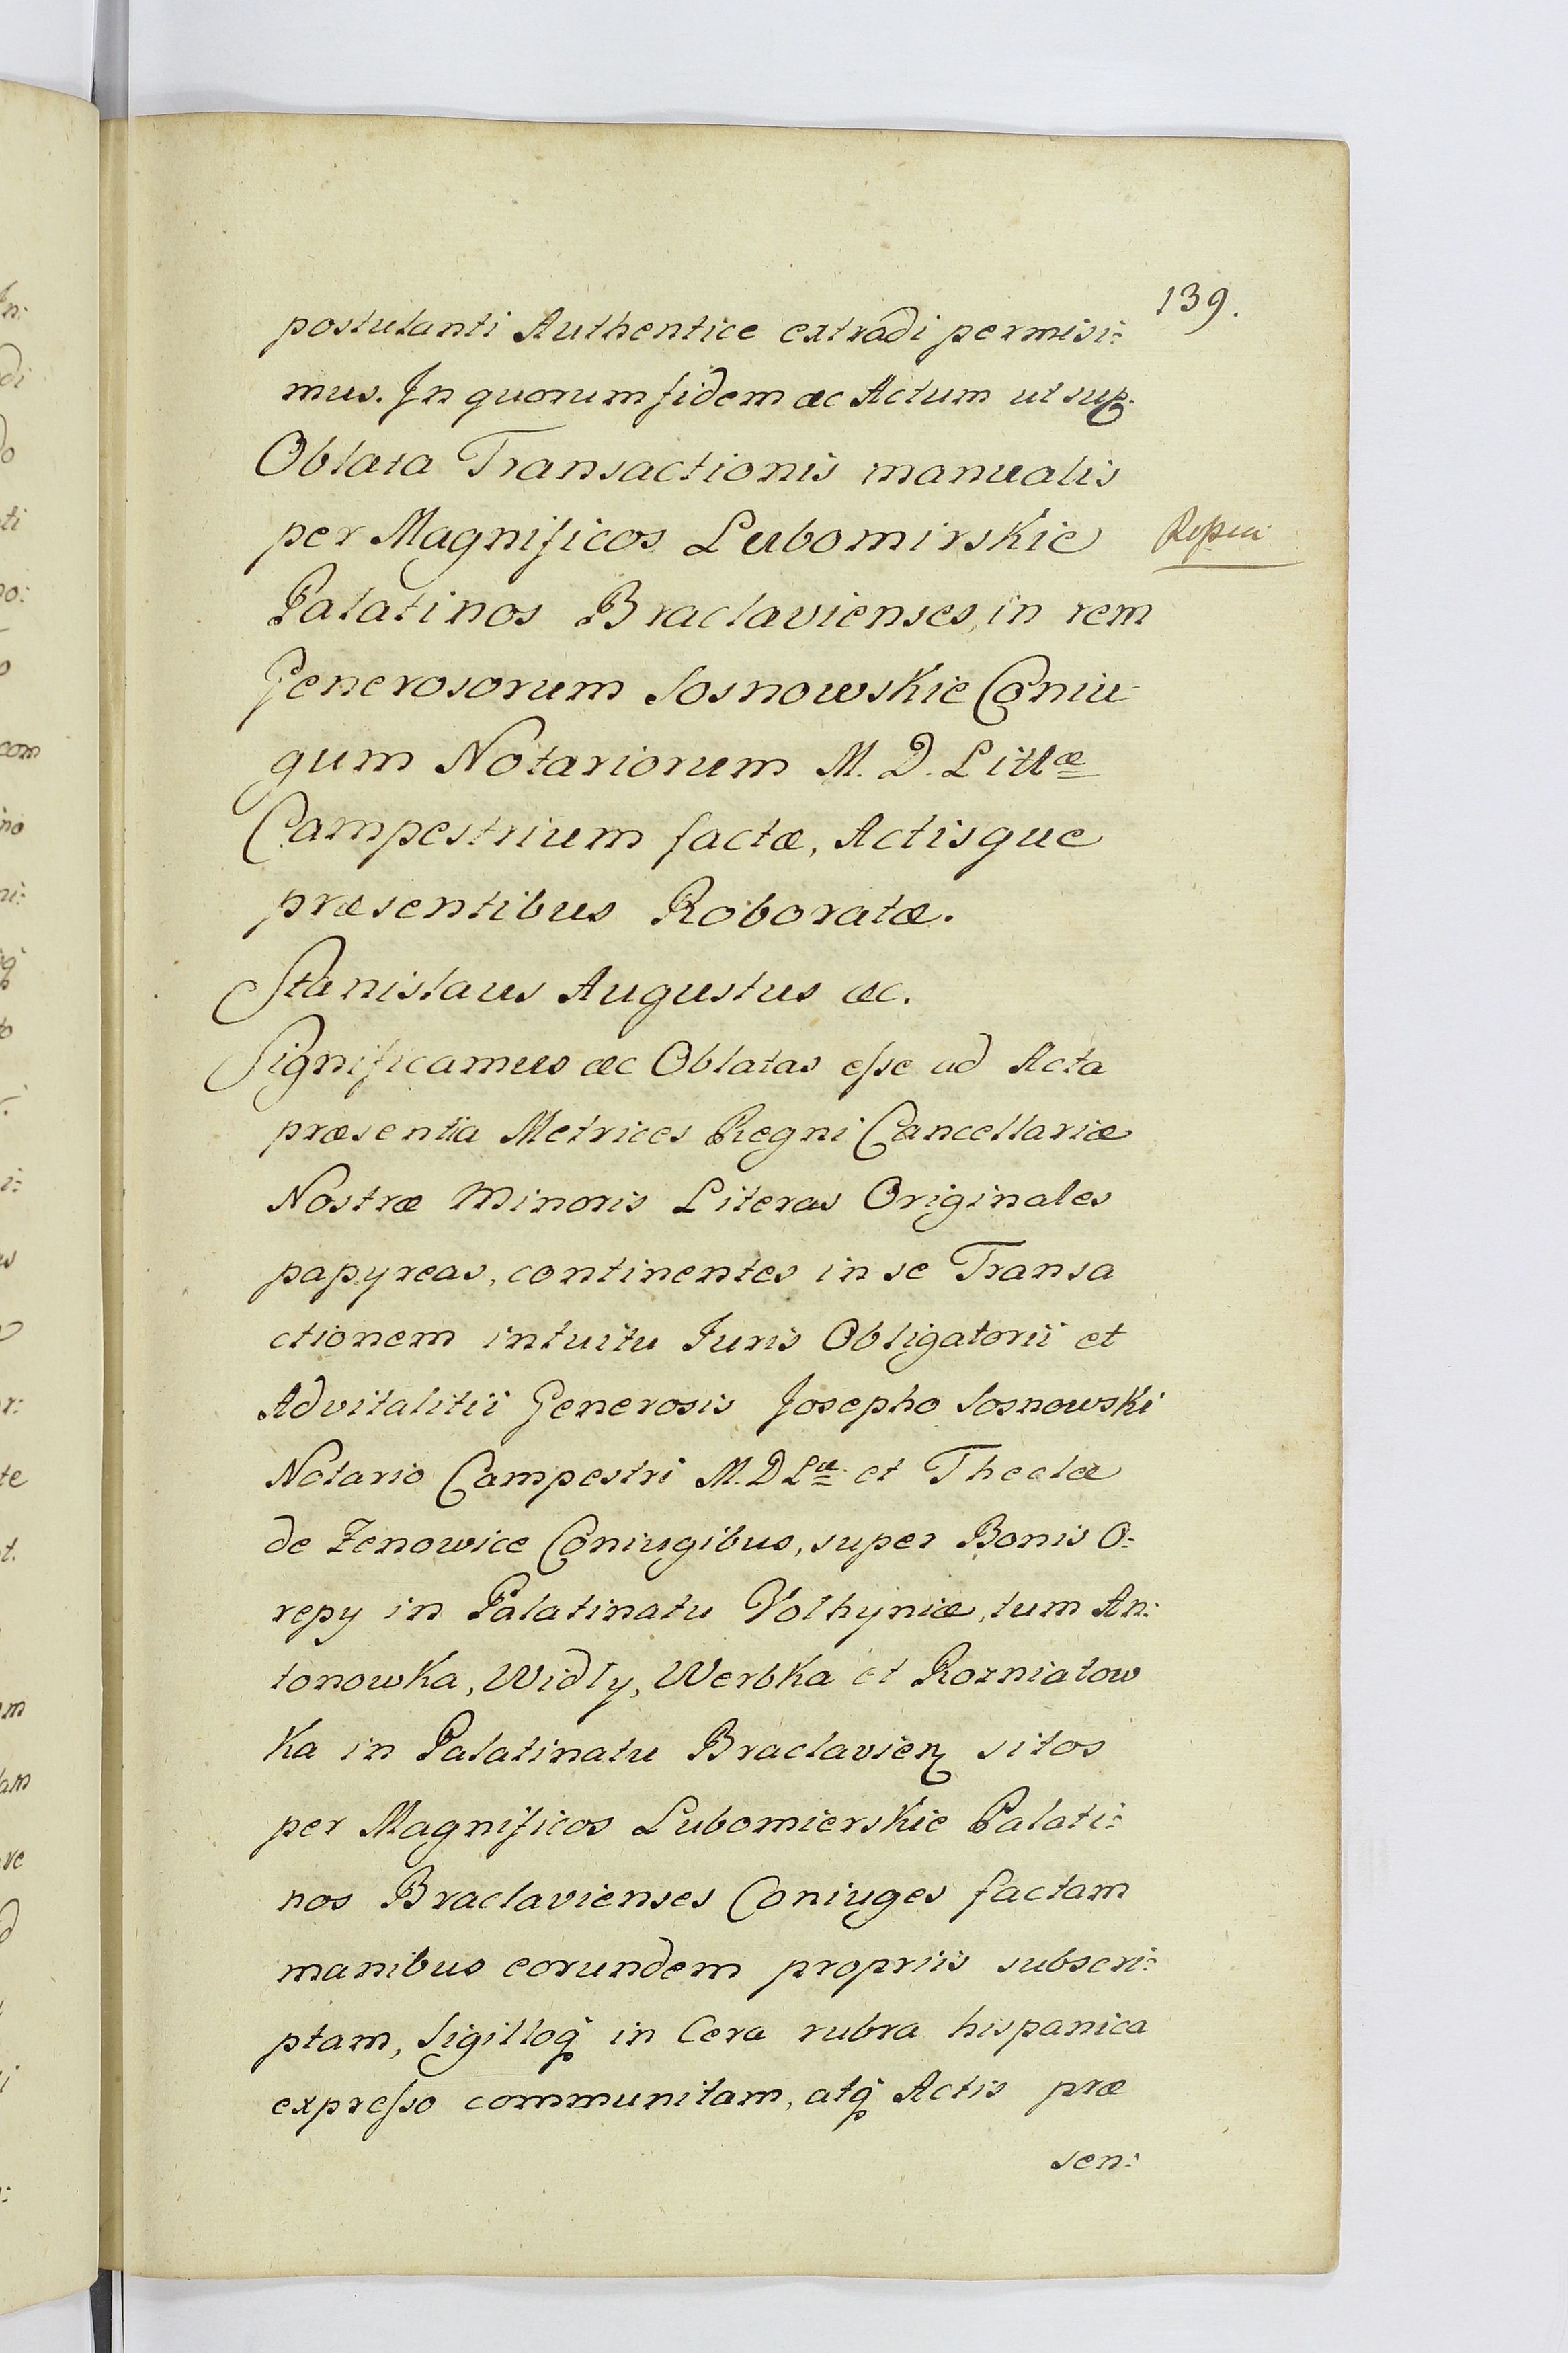 139.
postulanti Authentice extradi permisi:
mus. In quorum fidem &c Actum ut sup.
Oblata Transactionis manualis
per Magnificos Lubomirskie
Palatinos Braclavienses, in rem
Generosorum Sosnowskie Coniu
gum Notariorum M. D. Littæ
Campestrium factæ, Actisque
præsentibus Roboratæ.
Stanislaus Augustus &c.
Significamus &c Oblatas eſse ad Acta
præsentia Metrices Regni Cancellariæ
Nostræ Minoris Literas Originales
papyreas, continentes in se Transa
ctionem intuitu Iuris Obligatorii et
Advitalitii Generosis Josepho Sosnowski
Notario Campestri M. D Læ et Theclæ
de Zenowice Coniugibus, super Bonis O:
repy in Palatinatu Volhyniæ, tum An:
tonowka, Widly, Werbka et Rozniatow
ka in Palatinatu Braclavien sitos
per Magnificos Lubomierskie Palati:
nos Braclavienses Coniuges factam
manibus eorundem propriis subscri:
ptam, Sigilloq in Cera rubra hispanica
expreſso communitam, atq Actis præ
sen: